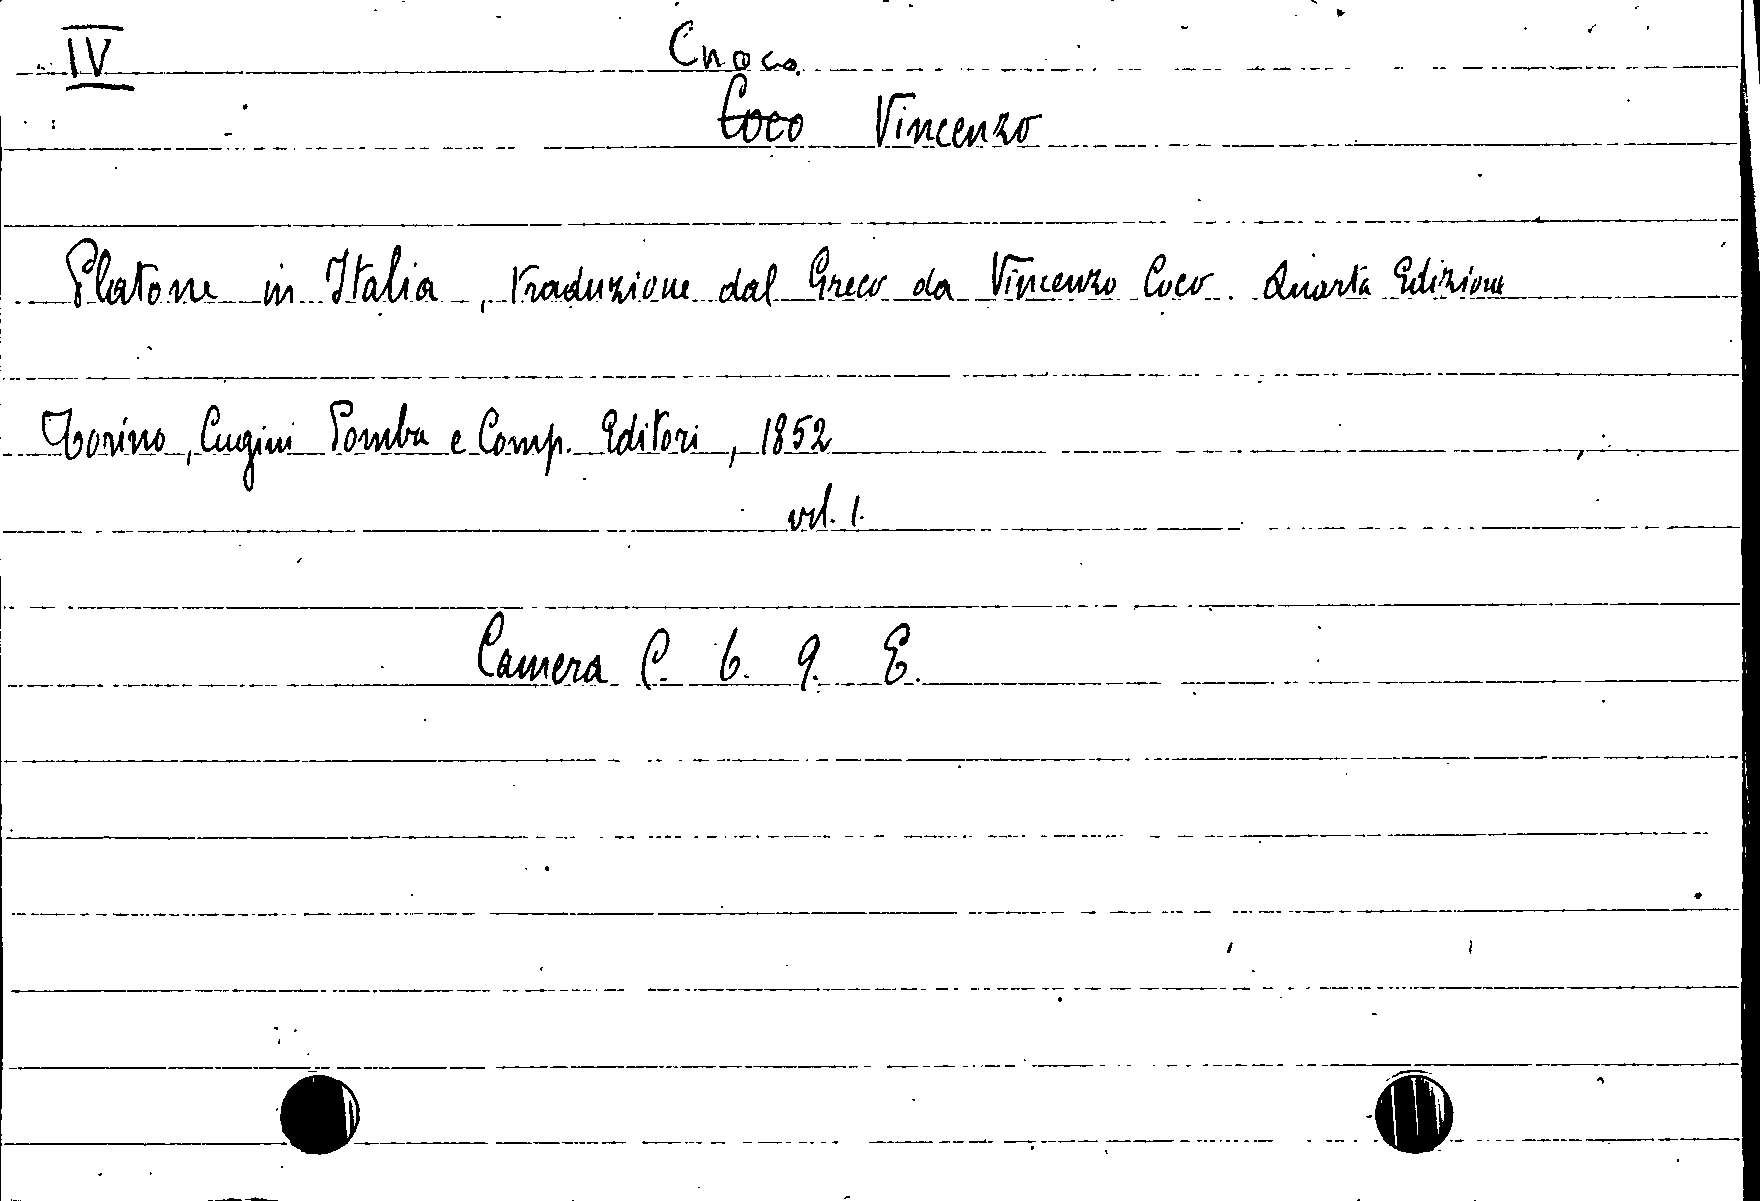 IV
Cuoco
Coco Vincenzo
Platone in Italia, traduzione dal Greco da Vincenzo Coco. Quarta Edizione
Torino, Cugini Pomba e Comp. Editori, 1852
vol. 1.
Camera C. 6. 9. E.